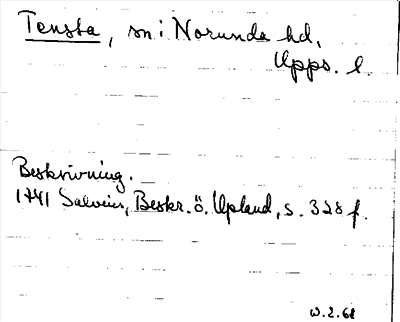 Tensta, sn i Norunda hd,
Upps. l.
Beskrivning.
1741 Salvius, Beskr. ö. Upland, s. 328 f.
W.2.61